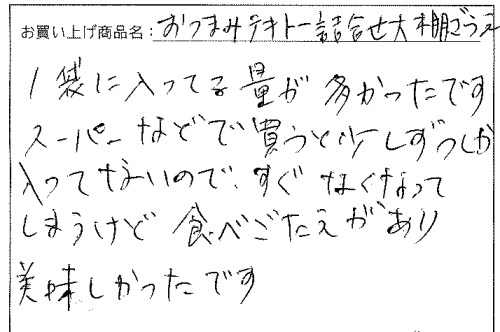 お買い上げ商品名:おつまみテキトー詰合せ大棚ざらえ
1袋に入ってる量が多かったです
スーパーなどで買うと少しずつしか
入ってないので、すぐなくなって
しまうけど食べごたえがあり
美味しかったです